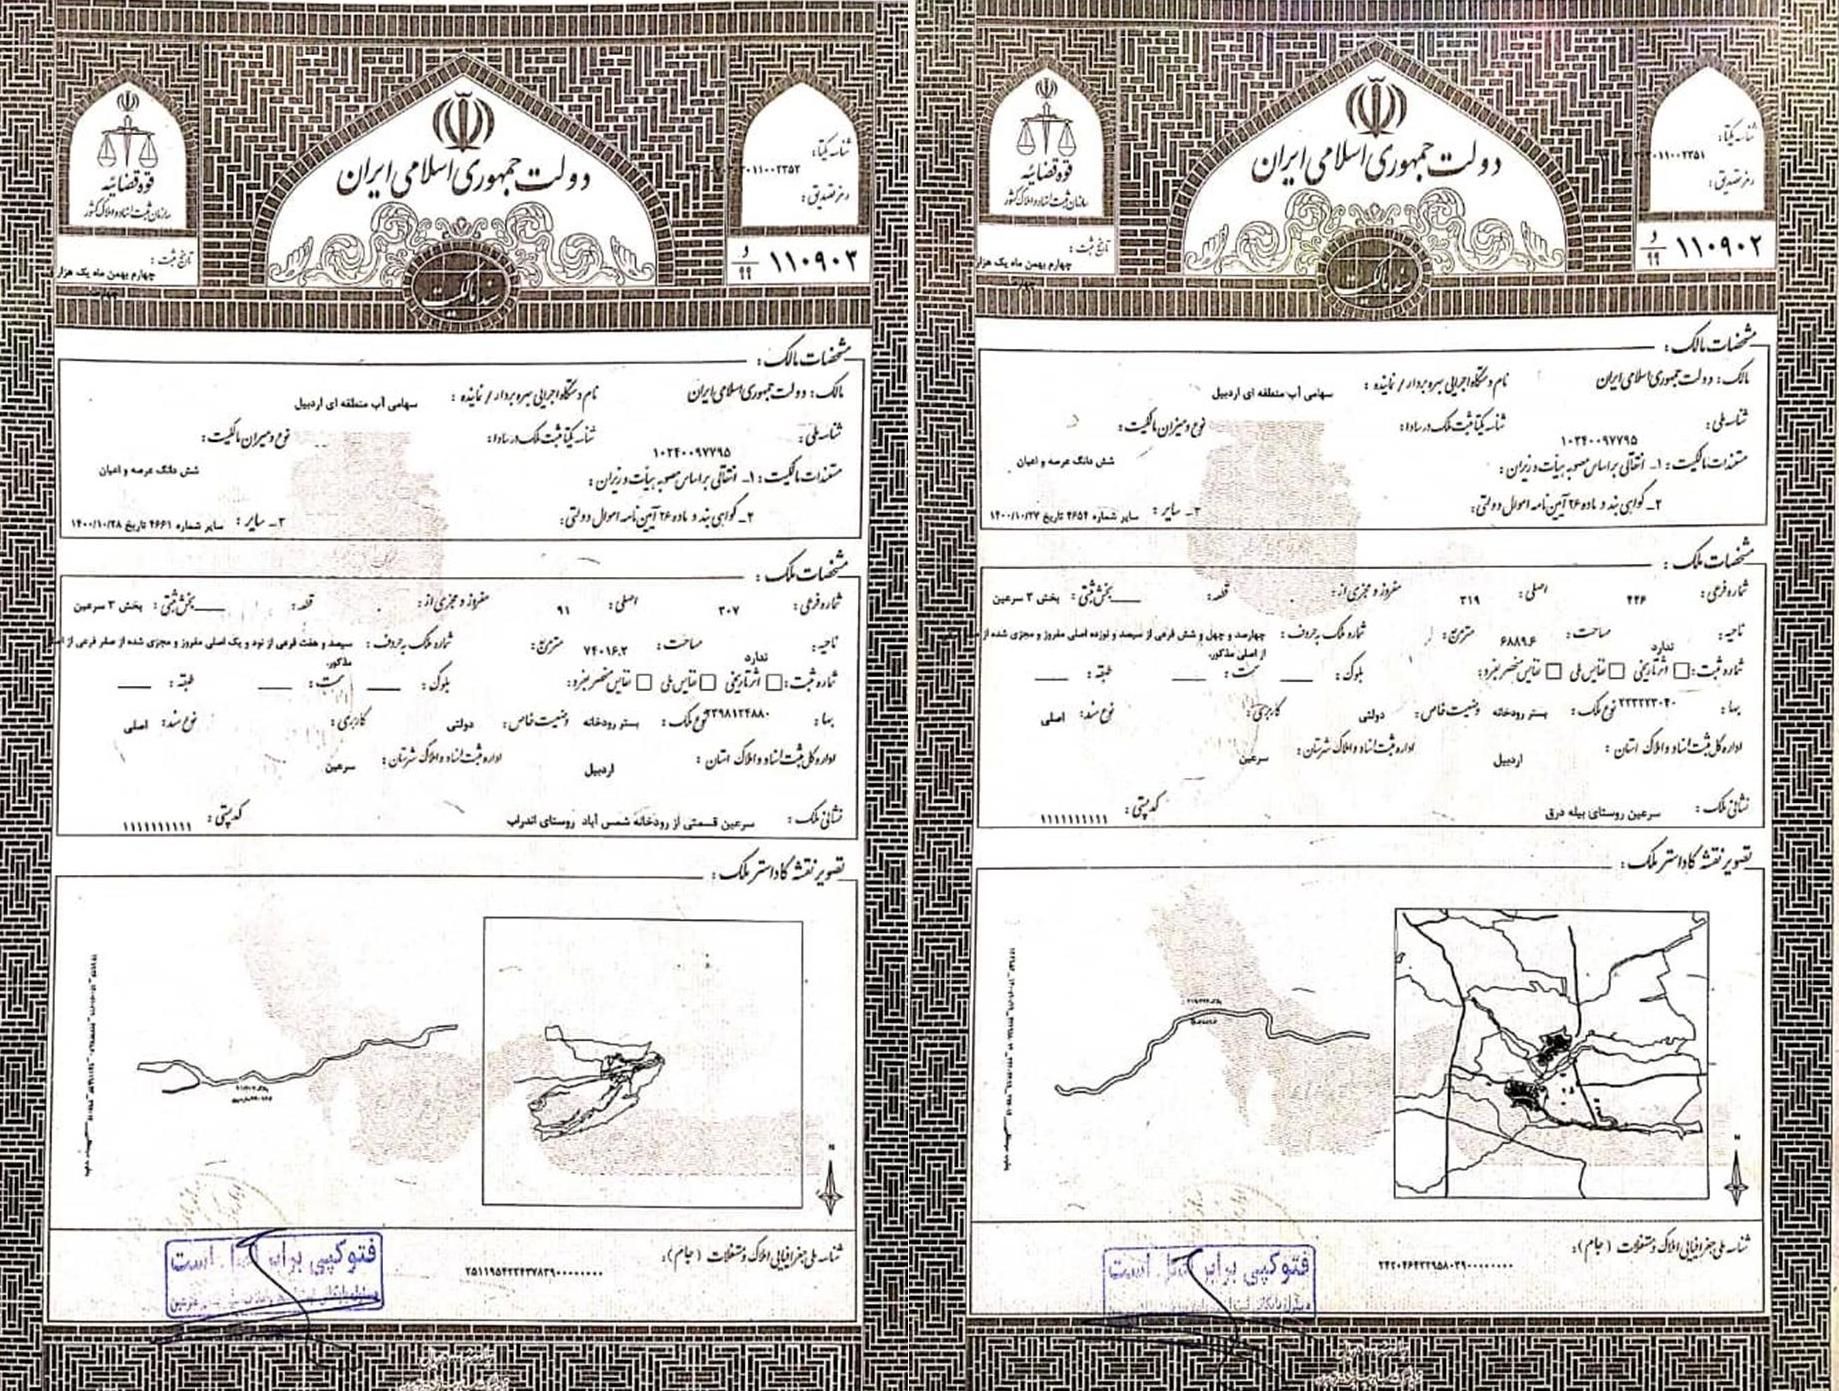 قوه قضائیه
سازمان ثبت اسناد و املاک کشور
دولت جمهوری اسلامی ایران
شناسه یکتا:
رمز تصدیق:
تاریخ ثبت:
چهارم بهمن ماه یک هزار
سند مالکیت
۱۱۰۹۰۳ و/۹۹
مشخصات مالک:
مالک: دولت جمهوری اسلامی ایران نام دستگاه اجرایی بهره بردار / نماینده: سهامی آب منطقه ای اردبیل
شناسه ملی: ۱۰۲۴۰۰۹۷۷۹۵ شناسه یکتا ثبت ملک در سادا: نوع و میزان مالکیت:
مستندات مالکیت: ۱_ انتقالی براساس مصوبه هیأت وزیران: شش دانگ عرصه و اعیان
۲_ گواهی بند د ماده ۲۶ آیین نامه اموال دولتی: ۳_ سایر: سایر شماره ۴۶۶۱ تاریخ ۱۴۰۰/۱۰/۲۸
مشخصات ملک:
شماره فرعی: ۳۰۷ اصلی: ۹۱ مفروز و مجزی از: قطعه: بخش ثبتی: بخش ۳ سرعین
ناحیه: ندارد مساحت: ۷۴۰۱۶.۲ مترمربع: شماره ملک به حروف: سیصد و هفت فرعی از نود و یک اصلی مفروز و مجزی شده از صفر فرعی از
مذکور.
شماره ثبت: اثر تاریخی نفایس ملی نفایس منحصر بفرد: بلوک: سمت: طبقه:
بها: نوع ملک: بستر رودخانه وضعیت خاص: دولتی کاربری: نوع سند: اصلی
اداره کل ثبت اسناد و املاک استان: اردبیل اداره ثبت اسناد و املاک شهرستان: سرعین
نشانی ملک: سرعین قسمتی از رودخانه شمس آباد روستای اندراب کد پستی: ۱۱۱۱۱۱۱۱۱۱
تصویر نقشه کاداستر ملک:
N
شناسه ملی جغرافیایی املاک و مستغلات (جام):
فتوکپی برابر است
قوه قضائیه
سازمان ثبت اسناد و املاک کشور
دولت جمهوری اسلامی ایران
شناسه یکتا:
رمز تصدیق:
تاریخ ثبت:
چهارم بهمن ماه یک هزار
سند مالکیت
۱۱۰۹۰۲ و/۹۹
مشخصات مالک:
مالک: دولت جمهوری اسلامی ایران نام دستگاه اجرایی بهره بردار / نماینده: سهامی آب منطقه ای اردبیل
شناسه ملی: ۱۰۲۴۰۰۹۷۷۹۵ شناسه یکتا ثبت ملک در سادا: نوع و میزان مالکیت:
مستندات مالکیت: ۱_ انتقالی براساس مصوبه هیأت وزیران: شش دانگ عرصه و اعیان
۲_ گواهی بند د ماده ۲۶ آیین نامه اموال دولتی: ۳_ سایر: سایر شماره ۴۶۵۴ تاریخ ۱۴۰۰/۱۰/۲۷
مشخصات ملک:
شماره فرعی: ۴۴۶ اصلی: ۳۱۹ مفروز و مجزی از: قطعه: بخش ثبتی: بخش ۳ سرعین
ناحیه: ندارد مساحت: ۶۸۸۹.۶ مترمربع: شماره ملک به حروف: چهارصد و چهل و شش فرعی از سیصد و نوزده اصلی مفروز و مجزی شده از
از اصلی مذکور.
شماره ثبت: اثر تاریخی نفایس ملی نفایس منحصر بفرد: بلوک: سمت: طبقه:
بها: نوع ملک: بستر رودخانه وضعیت خاص: دولتی کاربری: نوع سند: اصلی
اداره کل ثبت اسناد و املاک استان: اردبیل اداره ثبت اسناد و املاک شهرستان: سرعین
نشانی ملک: سرعین روستای بیله درق کد پستی: ۱۱۱۱۱۱۱۱۱۱
تصویر نقشه کاداستر ملک:
N
شناسه ملی جغرافیایی املاک و مستغلات (جام):
فتوکپی برابر است